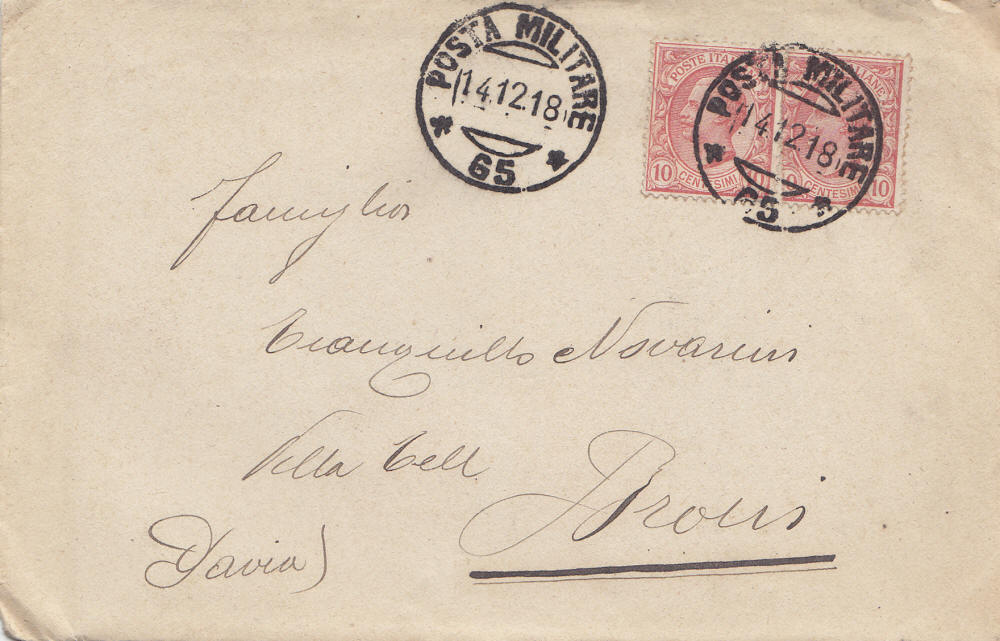 POSTA MILITARE
14.12.18
65
POSTE ITALIANE
10 CENTESIMI 10
10 CENTESIMI 10
POSTA MILITARE
14.12.18
65
Famiglia
Tranquillo Novarini
Villa Tell
Broni
(Pavia)